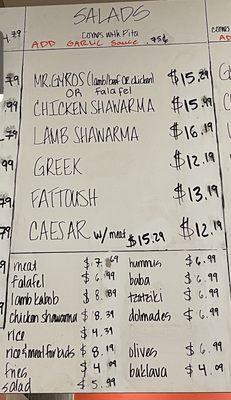 SALADS
comes with Pita
ADD GARLIC Sauce .75¢
MR.GYROS (lamb/beef OR chicken) $15.29
OR falafel
CHICKEN SHAWARMA $15.
LAMB SHAWARMA $16.19
GREEK $12.19
FATTOUSH $13.19
CAESAR w/ meat $15.29 $12.19
meat $7.69 hummus $6.99
falafel $6.99 baba $6.99
lamb kabob $8.89 tzatziki $6.99
chicken shawarma $8.39 dolmades $6.99
rice $4.39
rice & meat for kids $8.19 olives $6.99
fries $4.09 baklava $4.09
salad $5.99